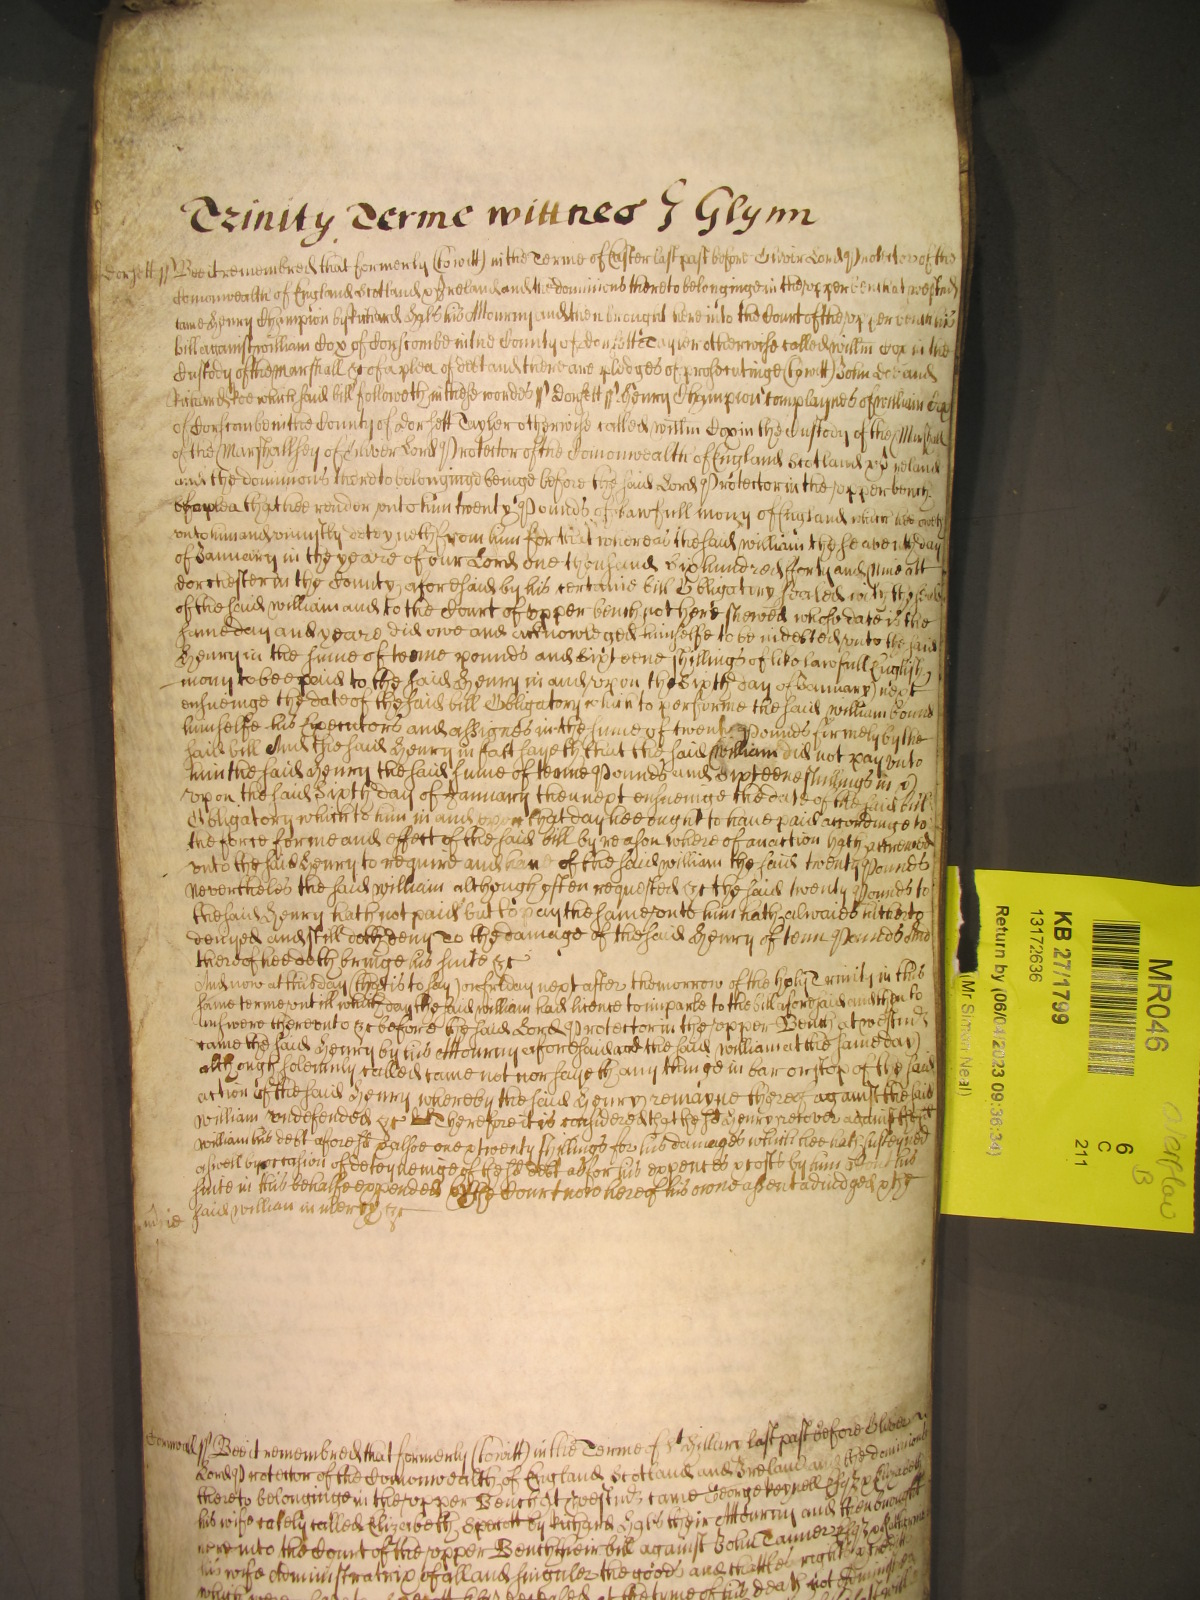 Trinity Terme wittnes J Glynn
Dorsett ss Bee it remembred that formerly (to witt) in the Terme of Easter last past before Oliver Lord Protector of the
Comonwealth of England Scotland & Ireland and the dominions thereto belonginge in the upper bench at westm
came Henry Champion by Richard his Attourny and then brought here into the Court of the upper bench his
bill against william Cox of Corscombe in the County of Dorsett Tayler otherwise called willm Cox in the
Custody of the Marshall &c of a plea of debt and there are pledges of prosecutinge (to witt) John Doe and
Richard Roe which said bill followeth in these wordes ss Dorsett ss Henry Champion complaynes of william Cox
of Corscombe in the County of Dorsett Tayler otherwise called willm Cox in the custody of the Marshall
of the Marshallsey of Oliver Lord Protector of the Comonwealth of England Scotland & Ireland
and the dominions thereto belonginge beinge before the said Lord Protector in the upper bench
of a plea that hee render unto him twenty Pounds of lawfull mony of England which hee oweth
unto him and uniustly deteyneth from him for that whereas the said william the seaventh day
of January in the yeare of our Lord one thousand six hundred forty and nine att
dorchester in the County aforesaid by his certaine bill Obligatory sealed with the seale
of the said william and to the Court of upper bench not here shewed whose date is the
same day and yeare did owe and acknowledged himselfe to be indebted unto the said
Henry in the sume of tenne pounds and sixteene shillings of like lawfull English
mony to bee paid to the said Henry in and upon the sixth day of January next
ensueinge the date of the said bill Obligatory which to performe the said william bound
himselfe his Executors and assignes in the sume of twenty Pounds firmely by the
said bill And the said Henry in fact sayeth that the said william did not pay unto
him the said Henry the said sume of tenne Pounds and sixteene shillings in &
upon the said sixth day of January then next ensueinge the date of the said bill
Obligatory which to him in and upon that day hee ought to have paid accordinge to
the force forme and effect of the said bill by reason whereof an action hath accrewed
unto the said Henry to require and have of the said william the said twenty Pounds
Neverthelesse the said william although often requested &c the said twenty Pounds to
the said Henry hath not paid but to pay the same unto him hath alwaies hitherto
denyed and still doth deny To the damage of the said Henry of tenn Pounds And
thereof hee doth bringe his suite &c
And now at this day (that is to say) on fryday next after the morrow of the Holy Trinity in this
same terme untill which day the said william had licence to imparle to the bill aforesaid and then to
answere thereunto &c before the said Lord Protector in the upper Bench at westm
came the said Henry by his Attourny aforesaid and the said william at the same day
although solemnly called came not nor sayeth any thinge in bar or stop of the said
action of the said Henry whereby the said Henry remayne thereof against the said
william undefended &c Therefore it is considered that the sd Henry recover against the sd
william his debt aforesd & alsoe one & twenty shillings for his damages which hee hath susteyned
aswell by occasion of deteyneinge of the sd debt as for his expences & costs by him about his
suite in this behalfe expended by the Court now here of his owne assent adiudged & the
said william in mercy &c
Cornwall ss Bee it remembred that formerly (to witt) in the Terme of St Hillarie last past before Oliver
Lord Protector of the Comonwealth of England Scotland and Ireland and the dominions
thereto belonginge in the upper Bench at westm came George Esqr & Elizabeth
his wife lately called Elizabeth by Richard their Attourny and then brought
here into the Court of the upper Bench their bill against John Tanner Esqr &
his wife administratrix of all and singuler the goods and chattles rights &
which were at the tyme of his death
MR046
KB 27/1799
13172636
Return by (06/04/2023 09:36:34)
(Mr Simon Neal)
6
C
211
B